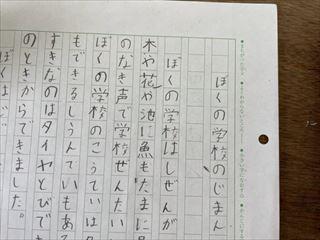 ぼくの学校のじまん
ぼくの学校はしぜんが
木や花や池に魚もたまに
のなき声で学校ぜんたい
ぼくの学校のこうていは
もできるしうんていもある
すきなのはタイヤとびで
のときからできました。
ぼくは